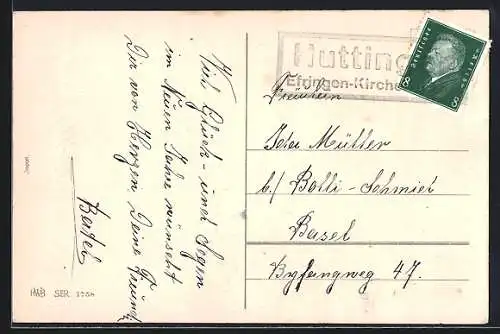 Viel Glück - und Segen
im Neuen Jahre wünscht
Dir von Herzen Deine Freundin
Bärbel
HWB SER. 1256
Hutting
Efringen-Kirche
Deutsches Reich
8 8
Fräulein
Ida Müller
b/ Bolli-Schmid
Basel
Byfangweg 47.